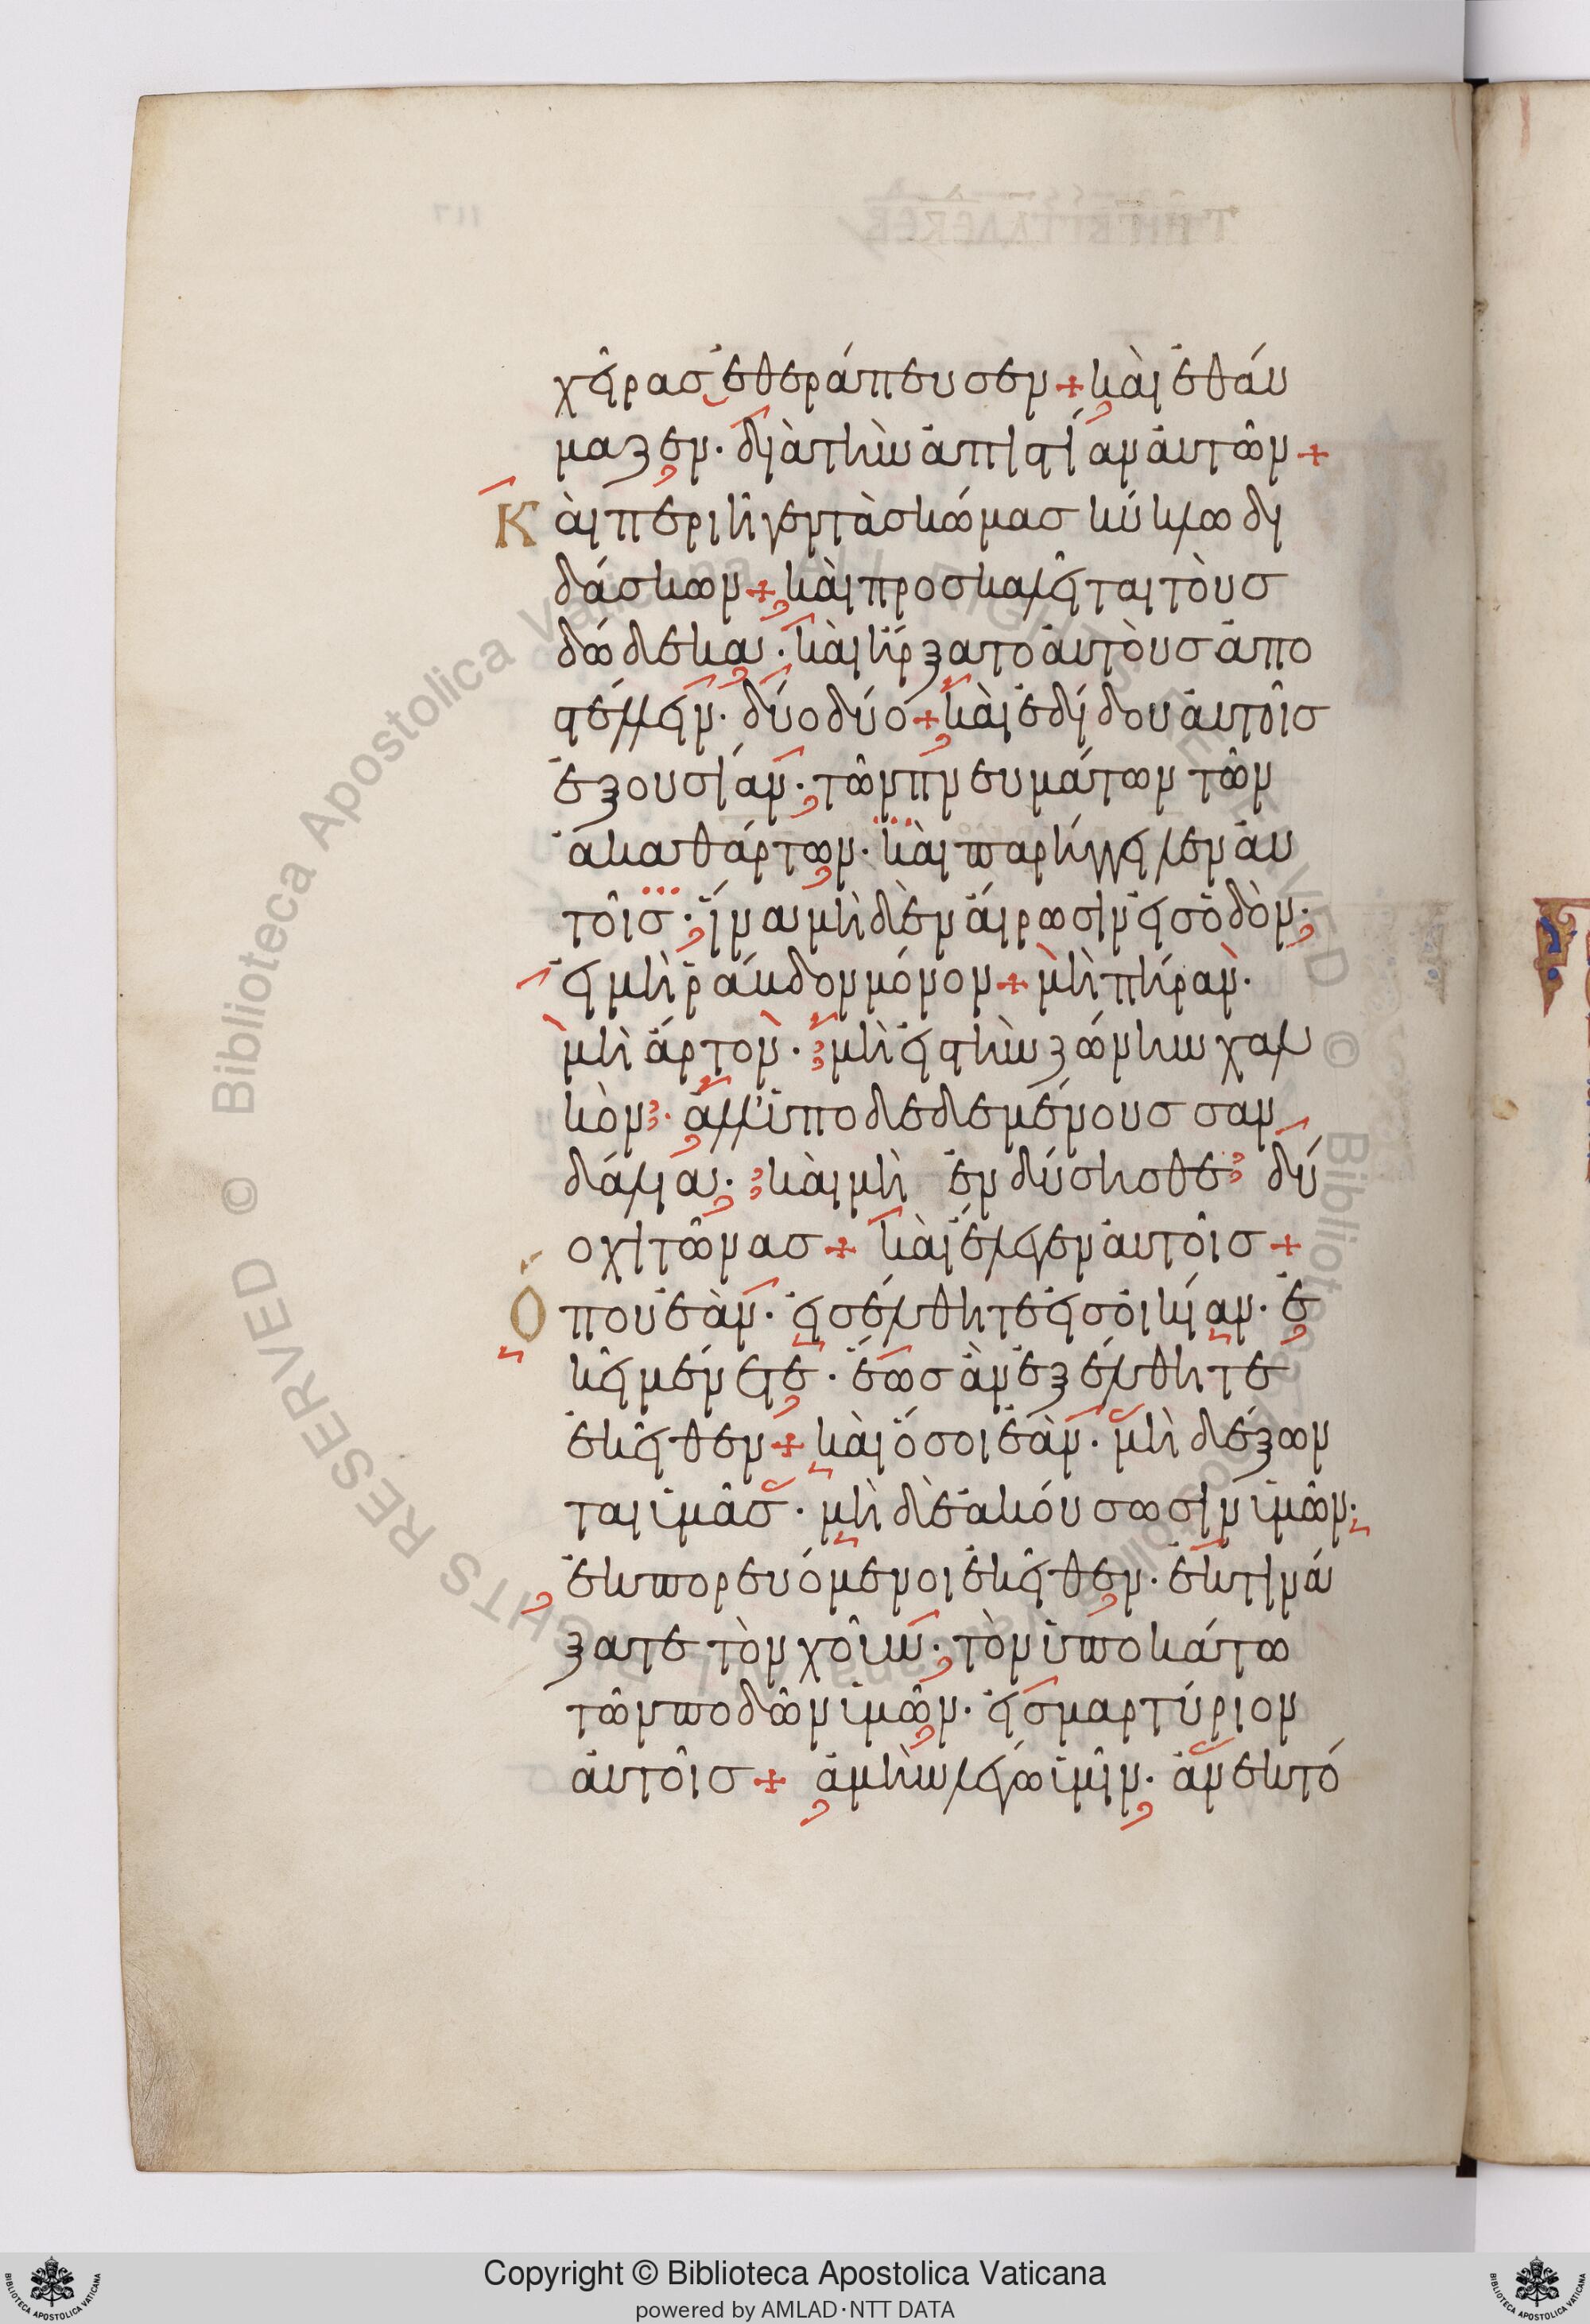 χεῖρας ἐθεράπευσεν + καὶ ἐθαύ
μαζεν· διὰ τὴν ἀπιστίαν αὐτῶν +
Καὶ περιῆγεν τὰς κώμας κύκλω δι
δάσκων + καὶ προσκαλεῖται τοὺς
δώδεκα· καὶ ἤρξατο αὐτοὺς ἀπο
στέλλειν· δύο δύο + καὶ ἐδίδου αὐτοῖς
ἐξουσίαν· τῶν πνευμάτων τῶν
ἀκαθάρτων· καὶ παρήγγειλεν αὐ
τοῖς· ἵνα μηδὲν αἴρωσιν εἰς ὁδὸν·
εἰ μὴ ῥάυδον μόνον + μὴ πήραν·
μὴ ἄρτον· μὴ εἰς τὴν ζώνην χαλ
κὸν· ἀλλ' ὑποδεδεμένους σαν
δάλια· καὶ μὴ ἐνδύσησθε δύ
ο χιτῶνας + καὶ ἔλεγεν αὐτοῖς +
Ὅπου ἐὰν· εἰσέλθητε εἰς οἰκίαν· ἐ
κεῖ μένετε· ἕως ἂν ἐξέλθητε
ἐκεῖθεν + καὶ ὅσοι ἐὰν· μὴ δέξων
ται ὑμᾶς· μὴ δὲ ἀκούσωσιν ὑμῶν·
ἐκπορευόμενοι ἐκεῖθεν· ἐκτινά
ξατε τὸν χοῦν· τὸν ὑποκάτω
τῶν ποδῶν ὑμῶν· εἰς μαρτύριον
αὐτοῖς + ἀμὴν λέγω ὑμῖν· ἀνεκτό
Copyright © Biblioteca Apostolica Vaticana
powered by AMLAD·NTT DATA